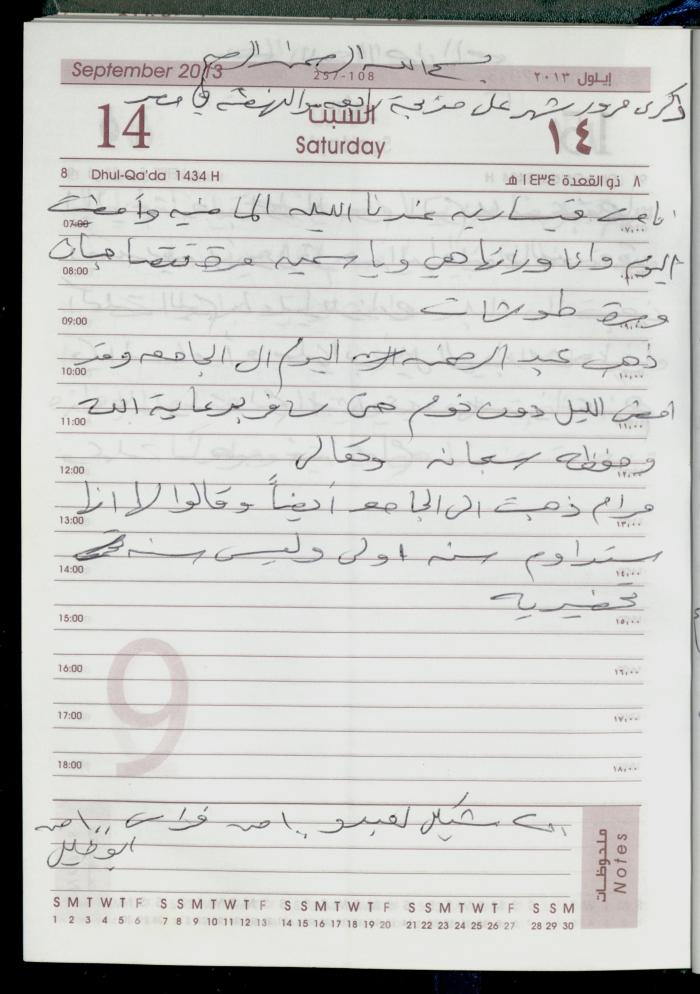 بسم الله الرحمن الرحيم
September 2013 257-108 إيلول ٢٠١٣
ذكرى مرور شهر على مذبحة رابعة والنهضة في مصر
14 السبت ١٤
Saturday
8 Dhul-Qa'da 1434 H ٨ ذو القعدة ١٤٣٤ هـ
نامت قيسارية عندنا الليلة الماضية وأمضت
07:00 ٠٧,٠٠
اليوم وانا ورائها هي ويا سمية مرة
08:00
ومرة طوشات
09:00
ذهب عبد الرحمن اليوم الى الجامعة وقد
10:00 ١٠,٠٠
امضى الليل دون نوم حتى سافر برعاية الله
11:00 ١١,٠٠
وحفظه سبحانه وتعالى
12:00 ١٢,٠٠
مرام ذهبت الى الجامعة أيضاً وقالوا لها انها
13:00 ١٣,٠٠
ستداوم سنة اولى وليس سنة
14:00 ١٤,٠٠
تحضيرية
15:00 ١٥,٠٠
16:00 ١٦,٠٠
9
17:00 ١٧,٠٠
18:00 ١٨,٠٠
شيكل لعبدو
ملحوظات
Notes
S M T W T F S S M T W T F S S M T W T F S S M T W T F S S M
1 2 3 4 5 6 7 8 9 10 11 12 13 14 15 16 17 18 19 20 21 22 23 24 25 26 27 28 29 30